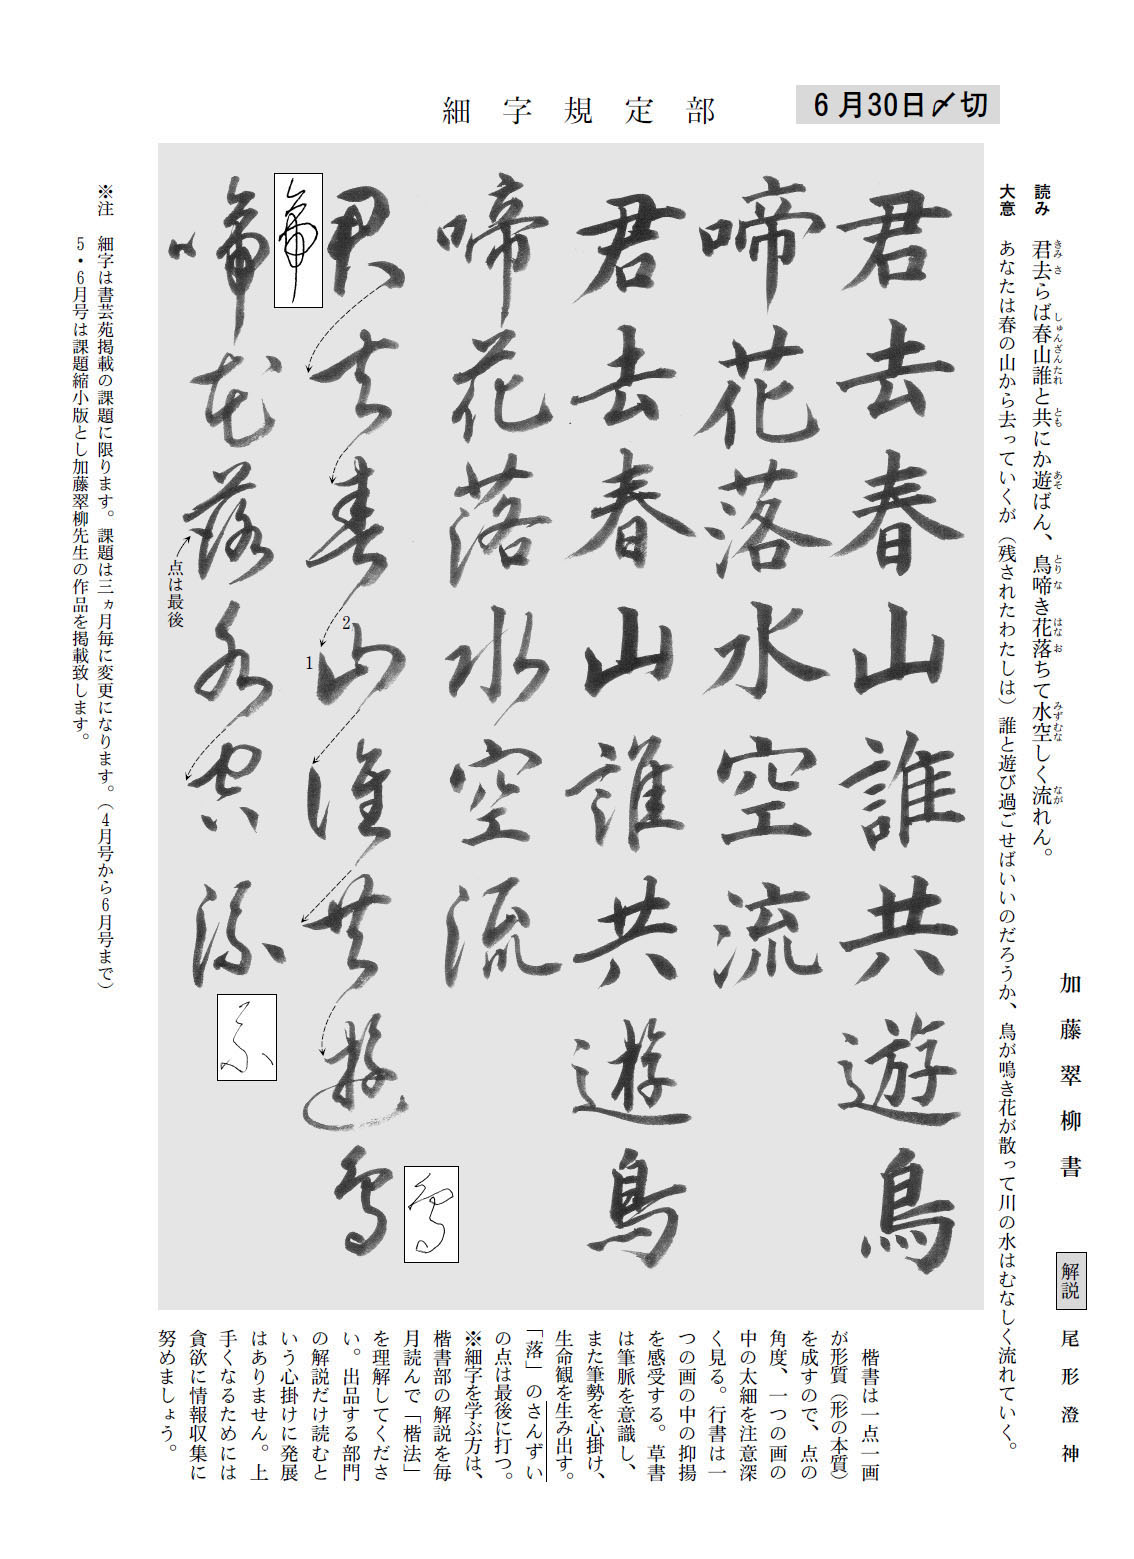 細字規定部
6月30日〆切
読み 君去らば春山誰と共にか遊ばん、鳥啼き花落ちて水空しく流れん。
きみ さ しゅんざんたれ とも あそ とり な はな お みずむな なが
大意 あなたは春の山から去っていくが（残されたわたしは）誰と遊び過ごせばいいのだろうか、鳥が鳴き花が散って川の水はむなしく流れていく。
加藤翠柳書
解説 尾形澄神
君去春山誰共遊鳥
啼花落水空流
君去春山誰共遊鳥
啼花落水空流
君去春山誰共遊鳥
2
1
啼花落水空流
点は最後
啼
鳥
流
※注 細字は書芸苑掲載の課題に限ります。課題は三ヵ月毎に変更になります。（4月号から6月号まで）
5・6月号は課題縮小版とし加藤翠柳先生の作品を掲載致します。
楷書は一点一画
が形質（形の本質）
を成すので、点の
角度、一つの画の
中の太細を注意深
く見る。行書は一
つの画の中の抑揚
を感受する。草書
は筆脈を意識し、
また筆勢を心掛け、
生命観を生み出す。
「落」のさんずい
の点は最後に打つ。
※細字を学ぶ方は、
楷書部の解説を毎
月読んで「楷法」
を理解してくださ
い。出品する部門
の解説だけ読むと
いう心掛けに発展
はありません。上
手くなるためには
貪欲に情報収集に
努めましょう。